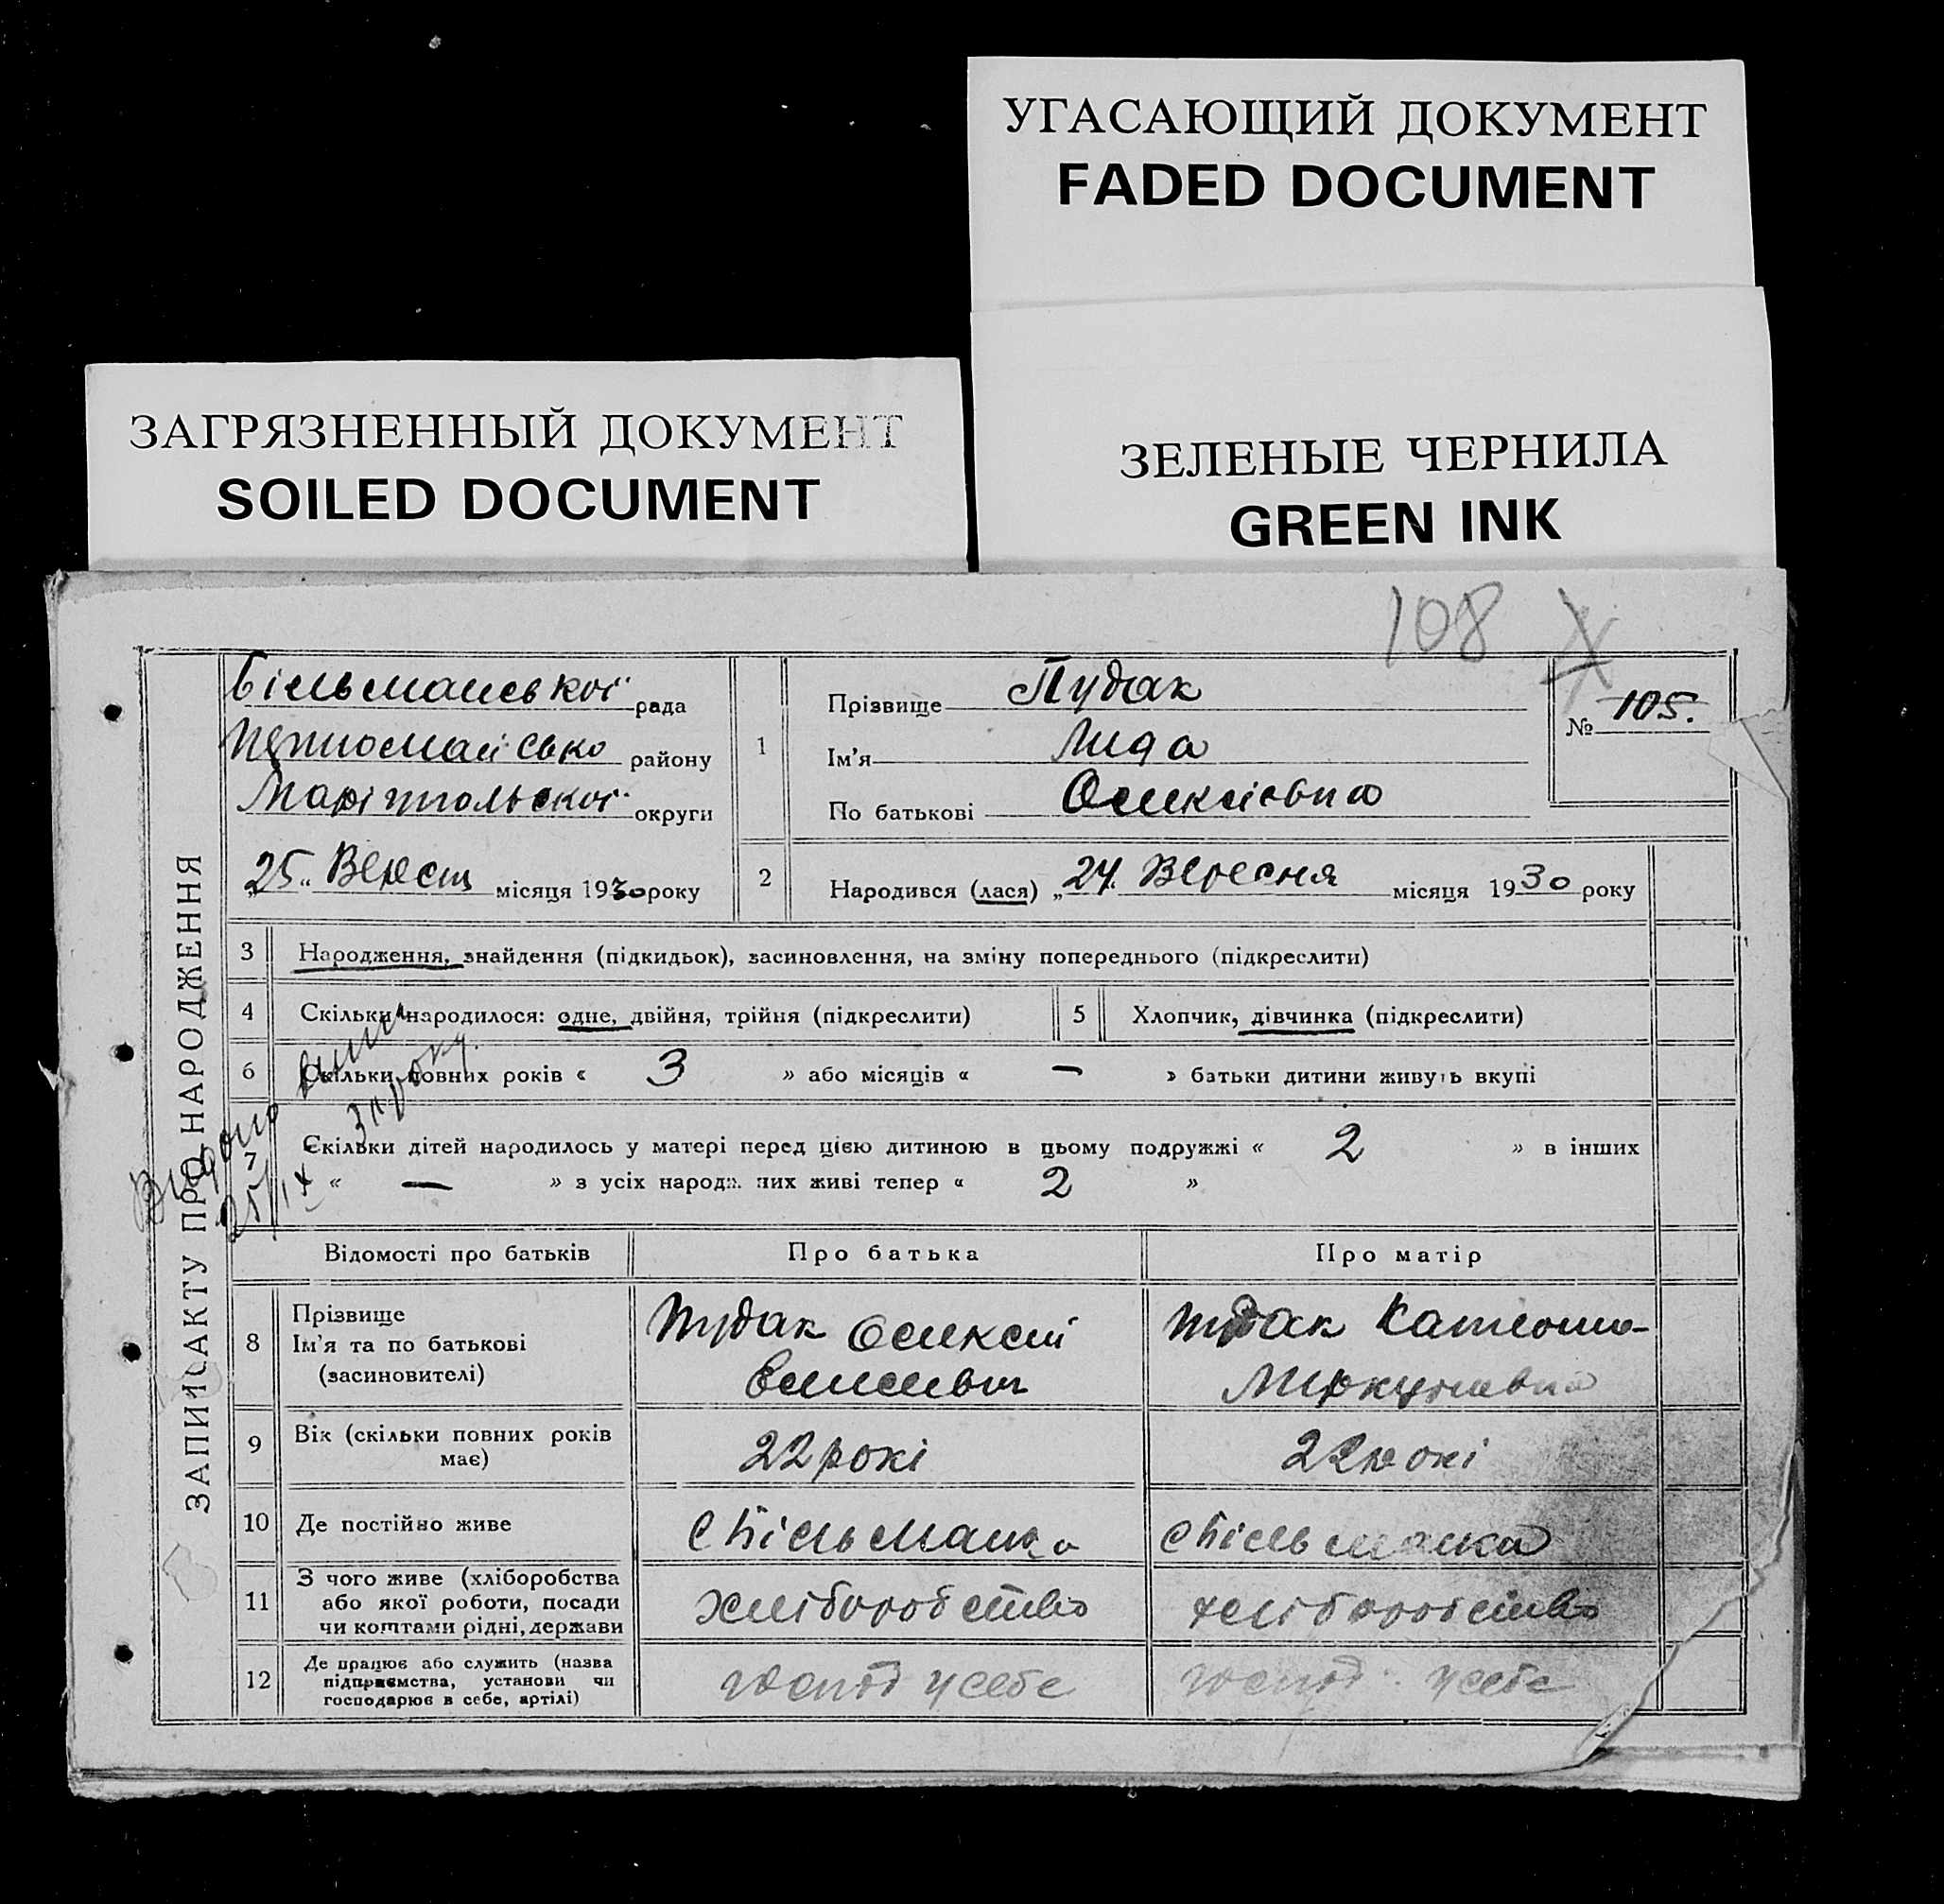 УГАСАЮЩИЙ ДОКУМЕНТ
FADED DOCUMENT
ЗАГРЯЗНЕННЫЙ ДОКУМЕНТ
SOILED DOCUMENT
ЗЕЛЕНЫЕ ЧЕРНИЛА
GREEN INK
108
ЗАПИС АКТУ ПРО НАРОДЖЕННЯ
Більманської рада
району
Маріупольскої округи
25 Вересня місяця 1930 року
1
Прізвище Пудак
Ім'я Лида
По батькові Олексіевна
№ 105.
2
Народився (лася) „24" Вересня місяця 1930 року
3 Народження, знайдення (підкидьок), засиновлення, на зміну попереднього (підкреслити)
4 Скільки народилося: одне, двійня, трійня (підкреслити)
5 Хлопчик, дівчинка (підкреслити)
6 Скільки повних років « 3 » або місяців « — » батьки дитини живуть вкупі
7 Скільки дітей народилось у матері перед цією дитиною в цьому подружжі « 2 » в інших
« — » з усіх народж. них живі тепер « 2 »
Видано
25/IX
Відомості про батьків
Про батька
Про матір
8 Прізвище
Ім'я та по батькові
(засиновителі)
Пудак Олексій
Пудак
9 Вік (скільки повних років
має)
22 рокі
22 рокі
10 Де постійно живе
с Більманка
с Більманка
11 З чого живе (хліборобства
або якої роботи, посади
чи коштами рідні, держави
хліборобство
хліборобство
12 Де працює або служить (назва
підприємства, установи чи
господарює в себе, артілі)
господ у себе
господ. у себе